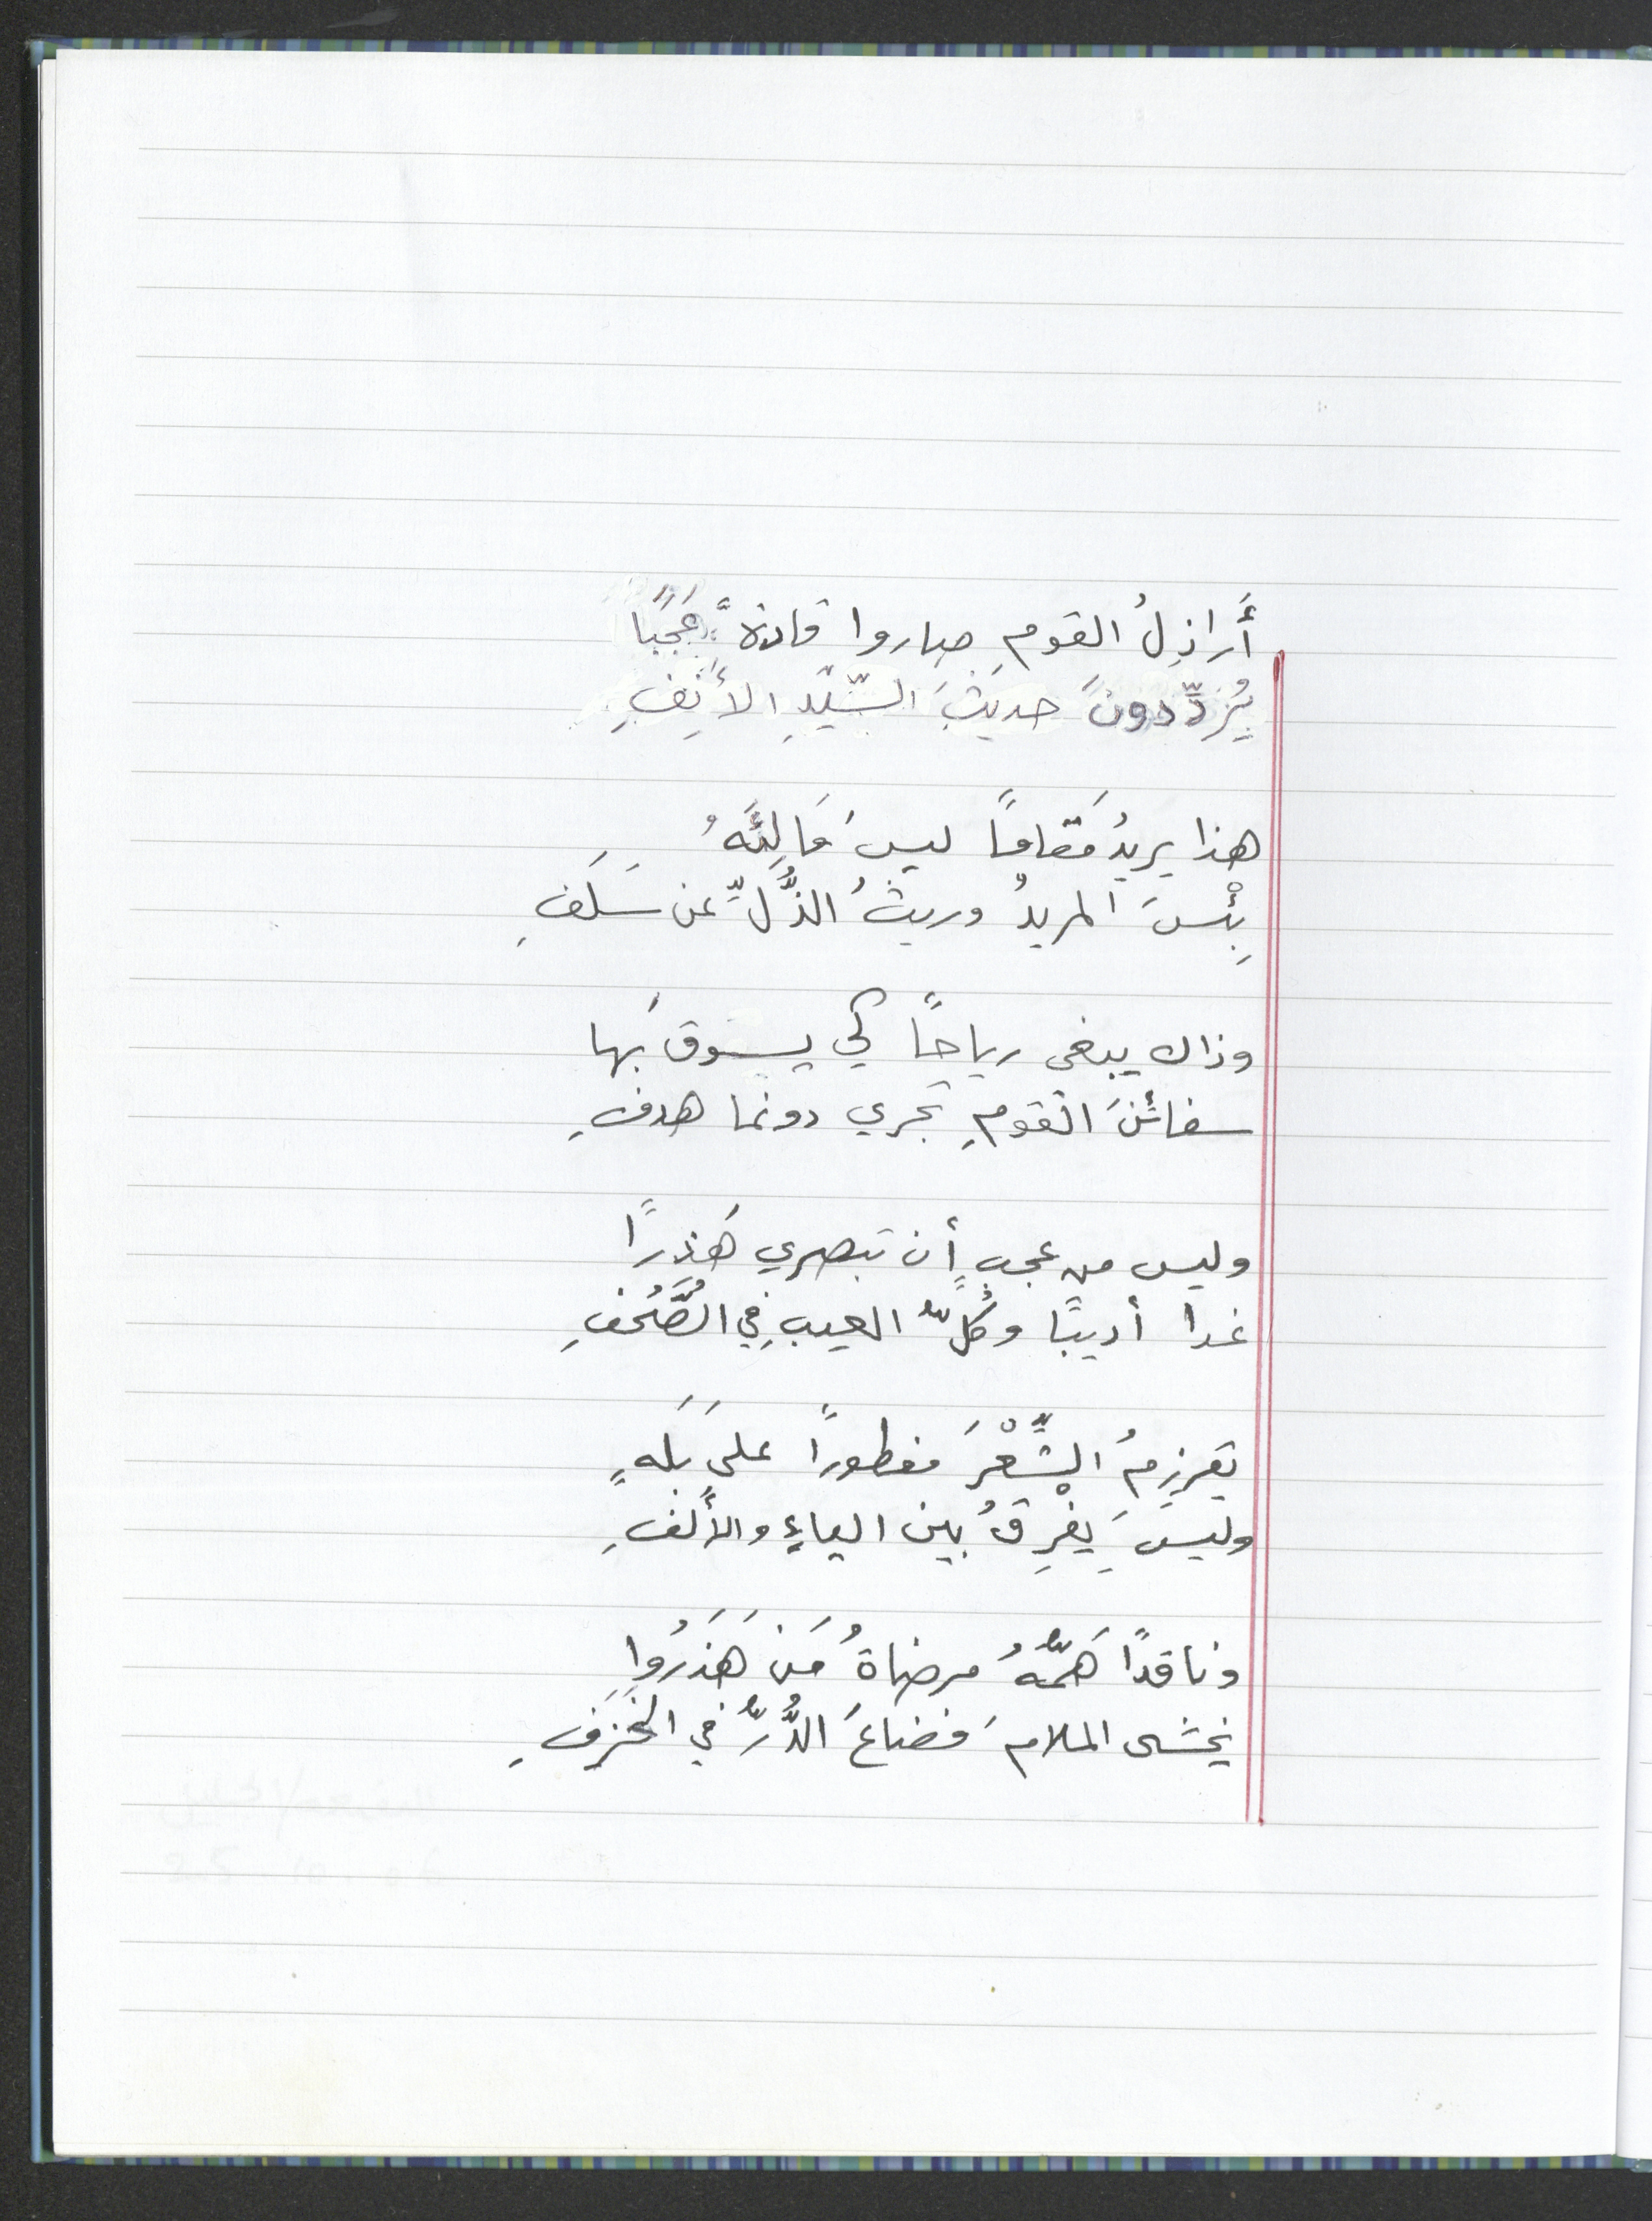 أَراذِلُ القومِ صاروا قادةً عَجَبًا
يُرَدِّدونَ حديثَ السَّيِّدِ الأَنِفِ
هذا يريدُ مَقامًا ليسَ مَالِئَهُ
بِئْسَ المريدُ وريثُ الذُّلِّ عن سَلَفِ
وذاك يبغي رياحًا كي يسوقَ بها
سفائنَ القومِ تجري دونما هدفِ
وليس من عجبٍ أن تبصري هَذِرًا
غدا أديبًا وكُلُّ العيبِ في الصُّحُفِ
يقرزِمُ الشِّعْرَ مفطورًا على بَلَهٍ
وليسَ يفْرِقُ بين الياءِ والأَلِفِ
وناقدًا هَمُّهُ مرضاةُ مَن هَذَرُوا
يخشى الملامَ فضاعَ الدُّرُّ في الخَزَفِ